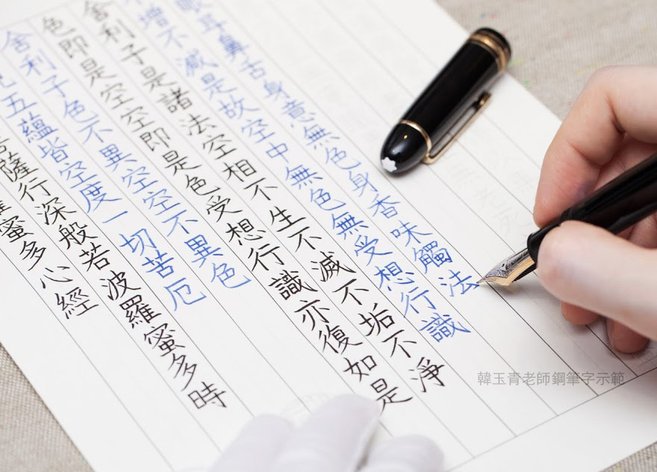 蜜多心經
薩行深般若波羅蜜多時
五蘊皆空度一切苦厄
舍利子色不異空空不異色
色即是空空即是色受想行識亦復如是
舍利子是諸法空相不生不滅不垢不淨
不增不減是故空中無色無受想行識
眼耳鼻舌身意無色身香味觸法
韓玉青老師鋼筆字示範